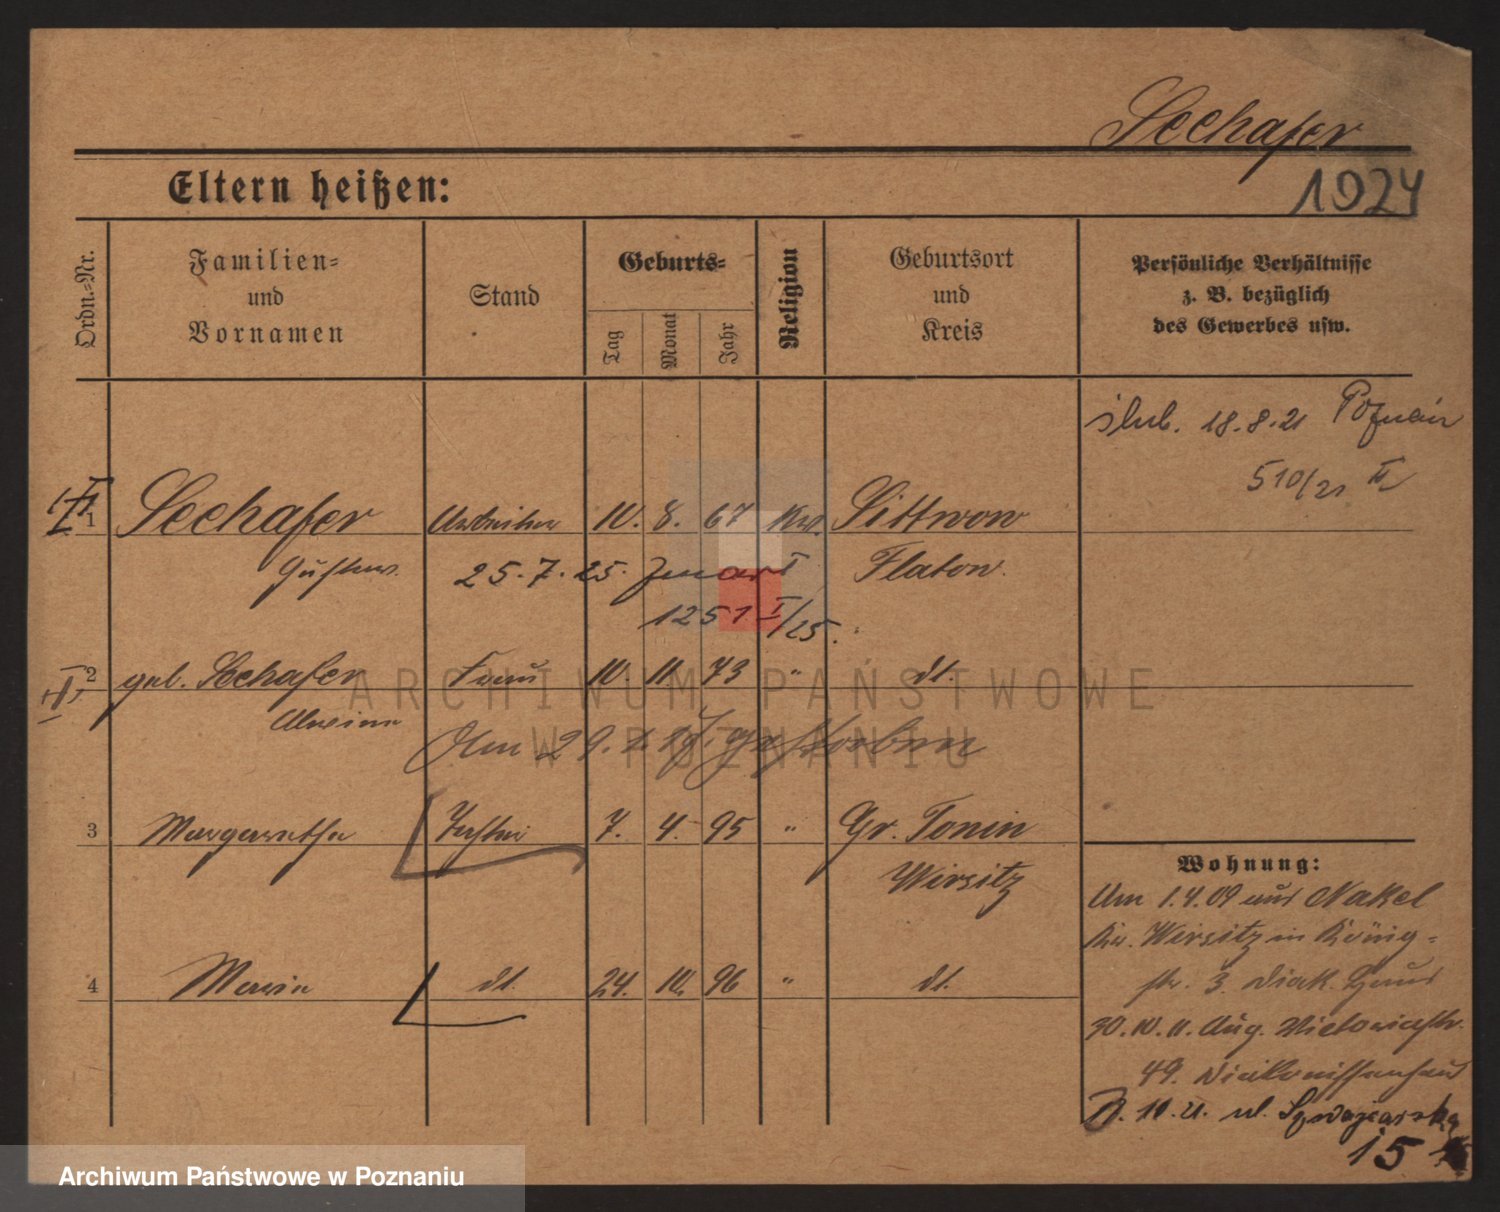 Seehafer
1924
Eltern heißen:
Ordn.=Nr.
Familien=
und
Vornamen
Stand
Geburts=
Tag
Monat
Jahr
Religion
Geburtsort
und
Kreis
Persönliche Verhältnisse
z. B. bezüglich
des Gewerbes usw.
ślub. 18.8.21 Poznań
510/21 II
1 Seehafer Arbeiter 10. 8. 67 Sittnow
Gustav. 25.7.25. zmarł Flatow.
1251 I/25.
2 geb. Seehafer Frau 10. 11. 73 " dt.
Alwine
Am 29.1.18. gestorben
3 Margarethe Tochter 7. 4. 95 " Gr. Tonin
Wirsitz
4 Maria dt. 24. 10. 96 " dt.
Wohnung:
Am 1.4.09 aus Nakel
Kr. Wirsitz in König=
str. 3. Diak. Haus
30.10.11. Aug. Victoriastr.
49. Diakonissenhaus
10.21. ul. Szwajcarska
15
ARCHIWUM PAŃSTWOWE
W POZNANIU
Archiwum Państwowe w Poznaniu